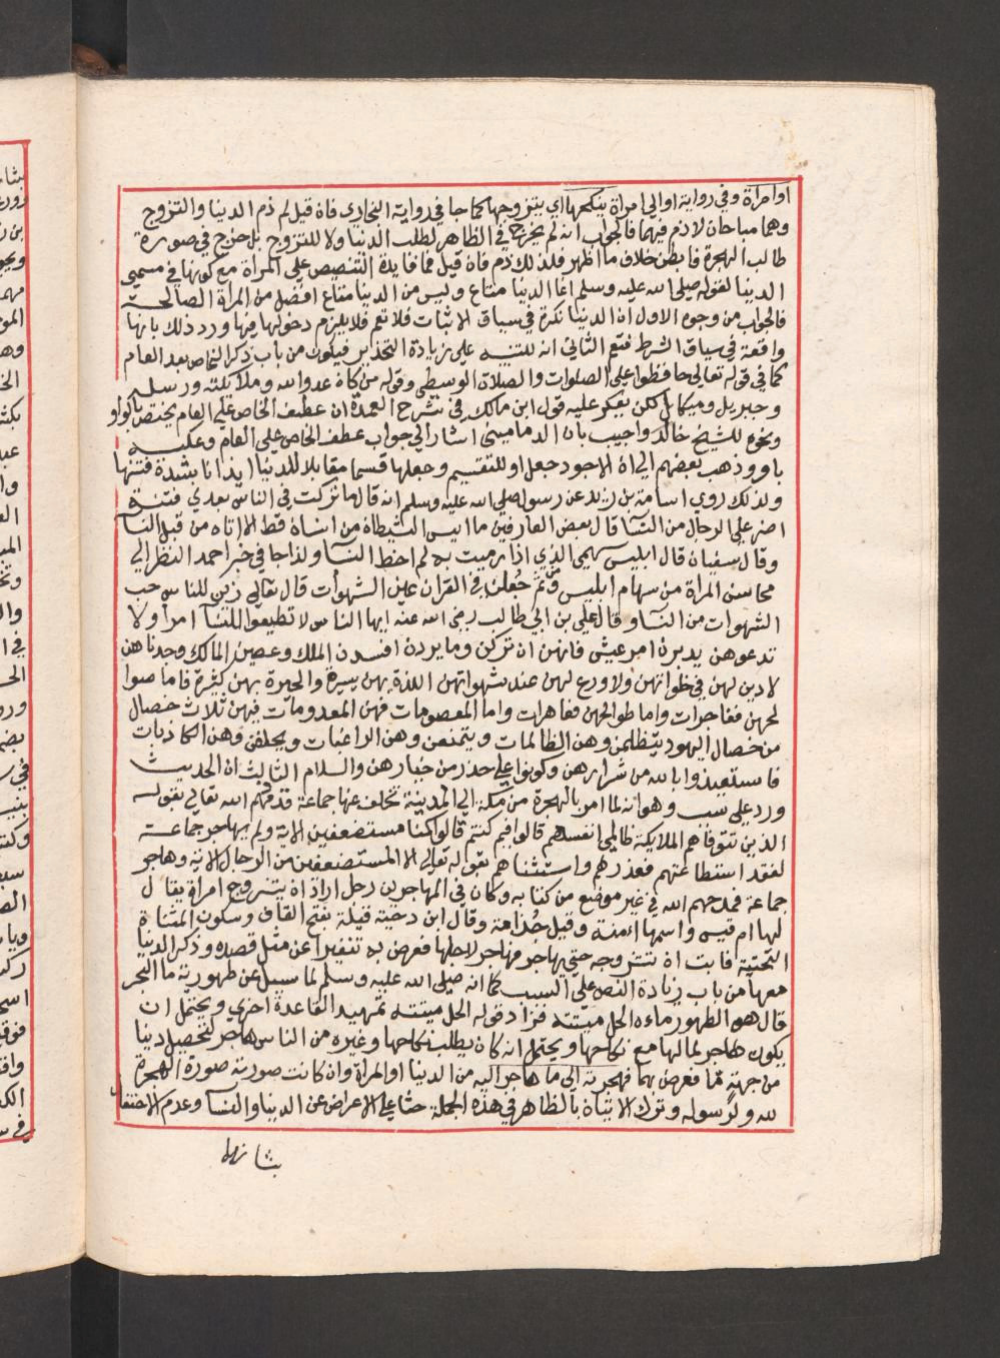 او امراة وفي رواية او الي امراة ينكحها اي يتزوجها كما جا في رواية البخاري فان قيل لم ذم الدينا والتزوج
وهما مباحان لا ذم فيهما فالجواب انه لم يخرج في الظاهر لطلب الدنيا ولا للتزوج بل خرج في صورة
طالب الهجرة فابطن خلاف ما اظهر فلذلك ذم فان قيل فما فايدة التنصيص علي المراة مع كونها في مسمي
الدينا لقوله صلي الله عليه وسلم انما الدينا متاع وليس من الدينا متاع افضل من المراة الصالحة
فالجواب من وجوه الاول ان الدينا نكرة في سياق الاثبات فلا تعم فلا يلزم دخولها فيها ورد ذلك بانها
واقعة في سياق الشرط فتعم الثاني انه للتنبيه علي زيادة التحذير فيكون من باب ذكر الخاص بعد العام
كما في قوله تعالي حافظوا علي الصلوات والصلاة الوسطي وقوله من كان عدوا لله وملائكته ورسله
وجبريل وميكال لكن يعكر عليه قول ابن مالك في شرح العمدة ان عطف الخاص علي العام يختص بالواو
ونحوه للشيخ خالد واجيب بان الدماميني اشار الي جواب عطف الخاص علي العام وعكسه
باو وذهب بعضهم الي ان الاجود جعل او للتقسيم وجعلها قسما مقابلا للدنيا ايذانا بشدة فتنتها
ولذلك روي اسامة بن زيد عن رسول الله صلي الله عليه وسلم انه قال ما تركت في الناس بعدي فتنة
اضر علي الرجال من النسا قال بعض العارفين ما ايس الشيطان من انسان قط الا اتاه من قبل النسا
وقال سفيان قال ابليس سهمي الذي اذا رميت به لم اخط النسا ولذا جا في خبر احمد النظر الي
محاسن المراة من سهام ابليس ومن ثم جعلن في القران عين الشهوات قال تعالي زين للناس حب
الشهوات من النسا وقال علي بن ابي طالب رضي الله عنه ايها الناس لا تطيعوا للنسا امرا ولا
تدعوهن يدبرن امر عيش فانهن ان تركن وما يردن افسدن الملك وعصين المالك وجدناهن
لا دين لهن في خلواتهن ولا ورع لهن عند شهواتهن اللذة بهن يسيرة والحيرة بهن كثيرة فاما صوا
لحهن ففاجرات واما طوالحهن فعاهرات واما المعصومات فهن المعدومات فيهن ثلاث خصال
من خصال اليهود يتظلمن وهن الظالمات ويتمنعن وهن الراغبات ويحلفن وهن الكاذبات
فاستعيذوا بالله من شرارهن وكونوا علي حذر من خيارهن والسلام الثالث ان الحديث
ورد علي سبب وهو انه لما امر بالهجرة من مكة الي المدينة تخلف عنها جماعة قدمهم الله تعالي بقوله
الذين تتوفاهم الملايكة ظالمي انفسهم قالوا فيم كنتم قالوا كنا مستضعفين الاية ولم يهاجر جماعة
لفقد استطاعتهم فعذرهم واستثناهم بقوله تعالي الا المستضعفين من الرجال الاية وهاجر
جماعة فمدحهم الله في غير موضع من كتابه وكان في المهاجرين رجل اراد ان يتزوج امراة يقال
لها ام قيس واسمها امنة وقيل جذامة وقال ابن دحية قيلة بفتح القاف وسكون المثناة
التحتية فابت ان تتزوجه حتي يهاجر فهاجر لاجلها فعرض به تنفيرا عن مثل قصده وذكر الدينا
معها من باب زيادة النص علي السبب كما انه صلي الله عليه وسلم لما سيل عن طهورية ما البحر
قال هو الطهور ماءه الحل ميتته فزاد قوله الحل ميتته تمهيد القاعدة اخري ويحتمل ان
يكون هاجر لمالها مع نكاحها ويحتمل انه كان يطلب نكاحها وغيره من الناس هاجر لتحصيل دينا
من جهة ما فعرض بهما فهجرته الي ما هاجر اليه من الدينا او المراة وان كانت صورته صورة الهجرة
لله ولرسوله وترك الاتيان بالظاهر في هذه الجملة حثا علي الاعراض عن الدينا والنسا وعدم الاحتفال
بشانهما